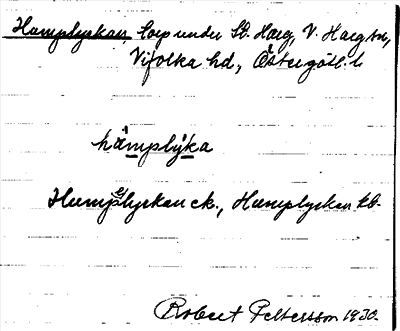 Humplyckan, torp under St. Harg, V. Harg sn,
Vifolka hd, Östergötl. l
hämplýka
Humplyckan ek., Humplyckan kb.
Robert Pettersson 1930.